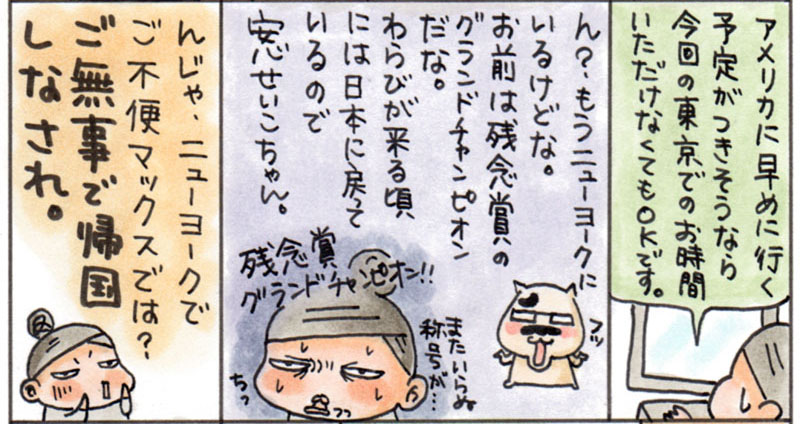 アメリカに早めに行く
予定がつきそうなら
今回の東京でのお時間
いただけなくてもOKです。
ん?もうニューヨークに
いるけどな。
お前は残念賞の
グランドチャンピオン
だな。
わらびが来る頃
には日本に戻って
いるので
安心せいこちゃん。
フッ
残念賞
グランドチャンピオン!!
またいらぬ
称号が…
ちっ
フフ
んじゃ、ニューヨークで
ご不便マックスでは?
ご無事で帰国
しなされ。